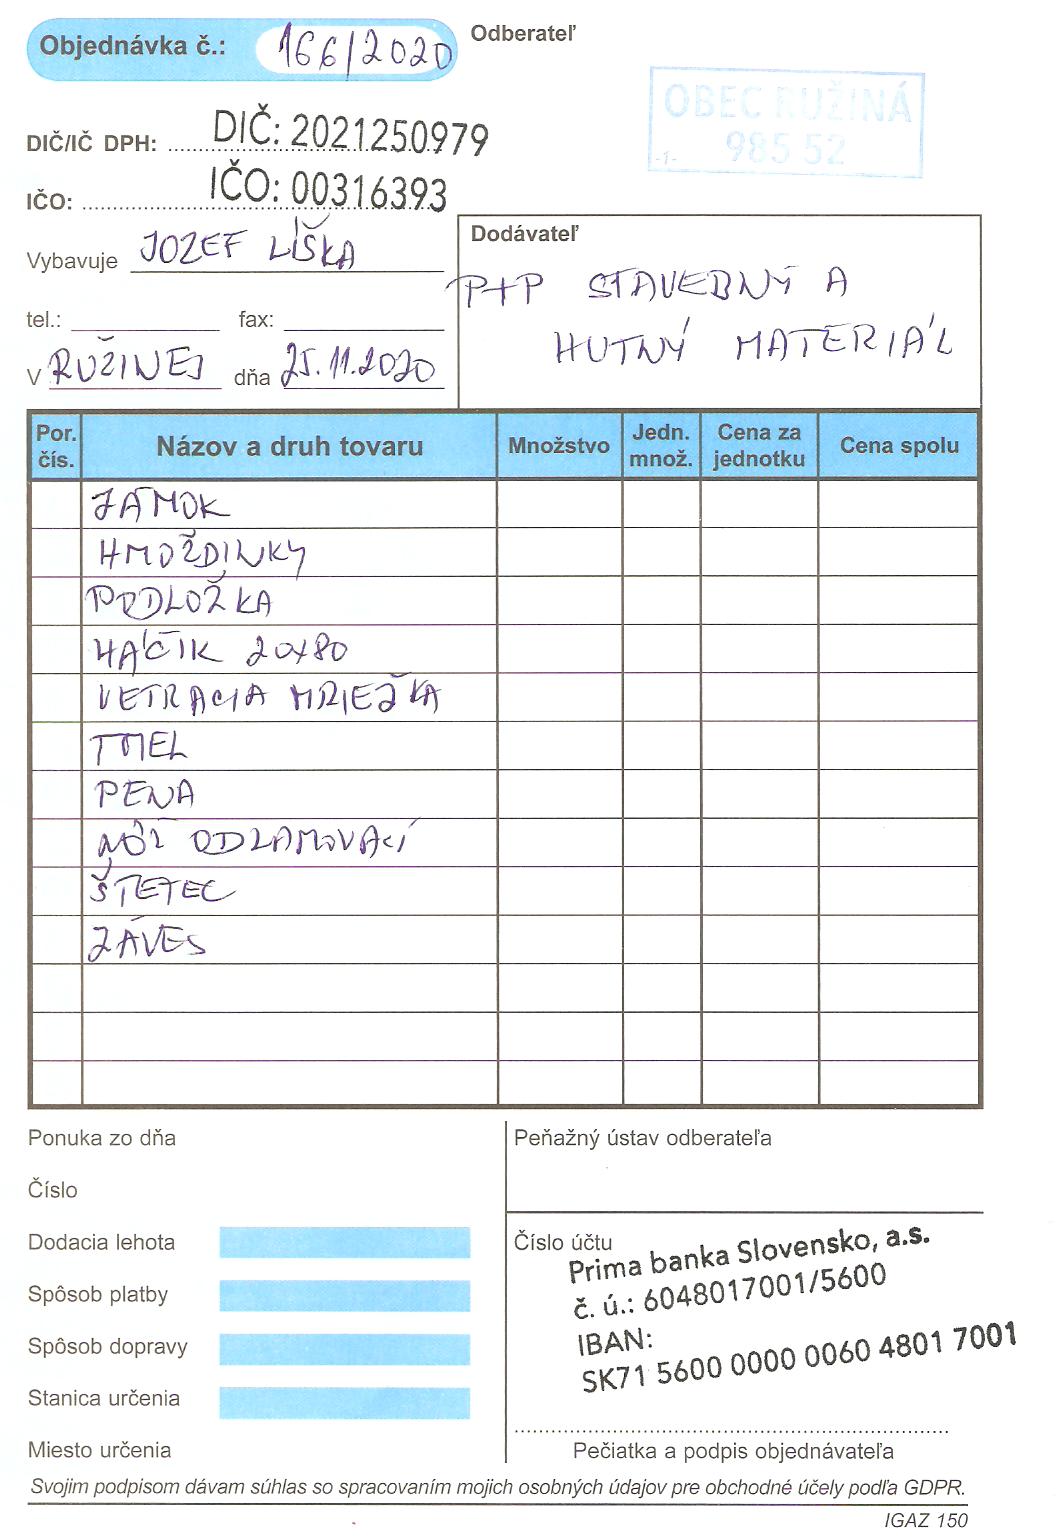 Objednávka č.: 166/2020
Odberateľ
OBEC RUŽINÁ
985 52
-1-
DIČ/IČ DPH: DIČ: 2021250979
IČO: IČO: 00316393
Vybavuje JOZEF LÍŠKA
tel.: fax:
V RUŽINEJ dňa 25.11.2020
Dodávateľ
P+P STAVEBNÝ A
HUTNÝ MATERIÁL
Por. čís. Názov a druh tovaru Množstvo Jedn. množ. Cena za jednotku Cena spolu
ZÁMOK
HMOŽDINKY
PODLOŽKA
HÁČIK 20x80
VETRACIA MRIEŽKA
TMEL
PENA
NÔŽ ODLAMOVACÍ
ŠTETEC
ZÁVES
Ponuka zo dňa
Číslo
Dodacia lehota
Spôsob platby
Spôsob dopravy
Stanica určenia
Miesto určenia
Peňažný ústav odberateľa
Číslo účtu
Prima banka Slovensko, a.s.
č. ú.: 6048017001/5600
IBAN:
SK71 5600 0000 0060 4801 7001
Pečiatka a podpis objednávateľa
Svojim podpisom dávam súhlas so spracovaním mojich osobných údajov pre obchodné účely podľa GDPR.
IGAZ 150